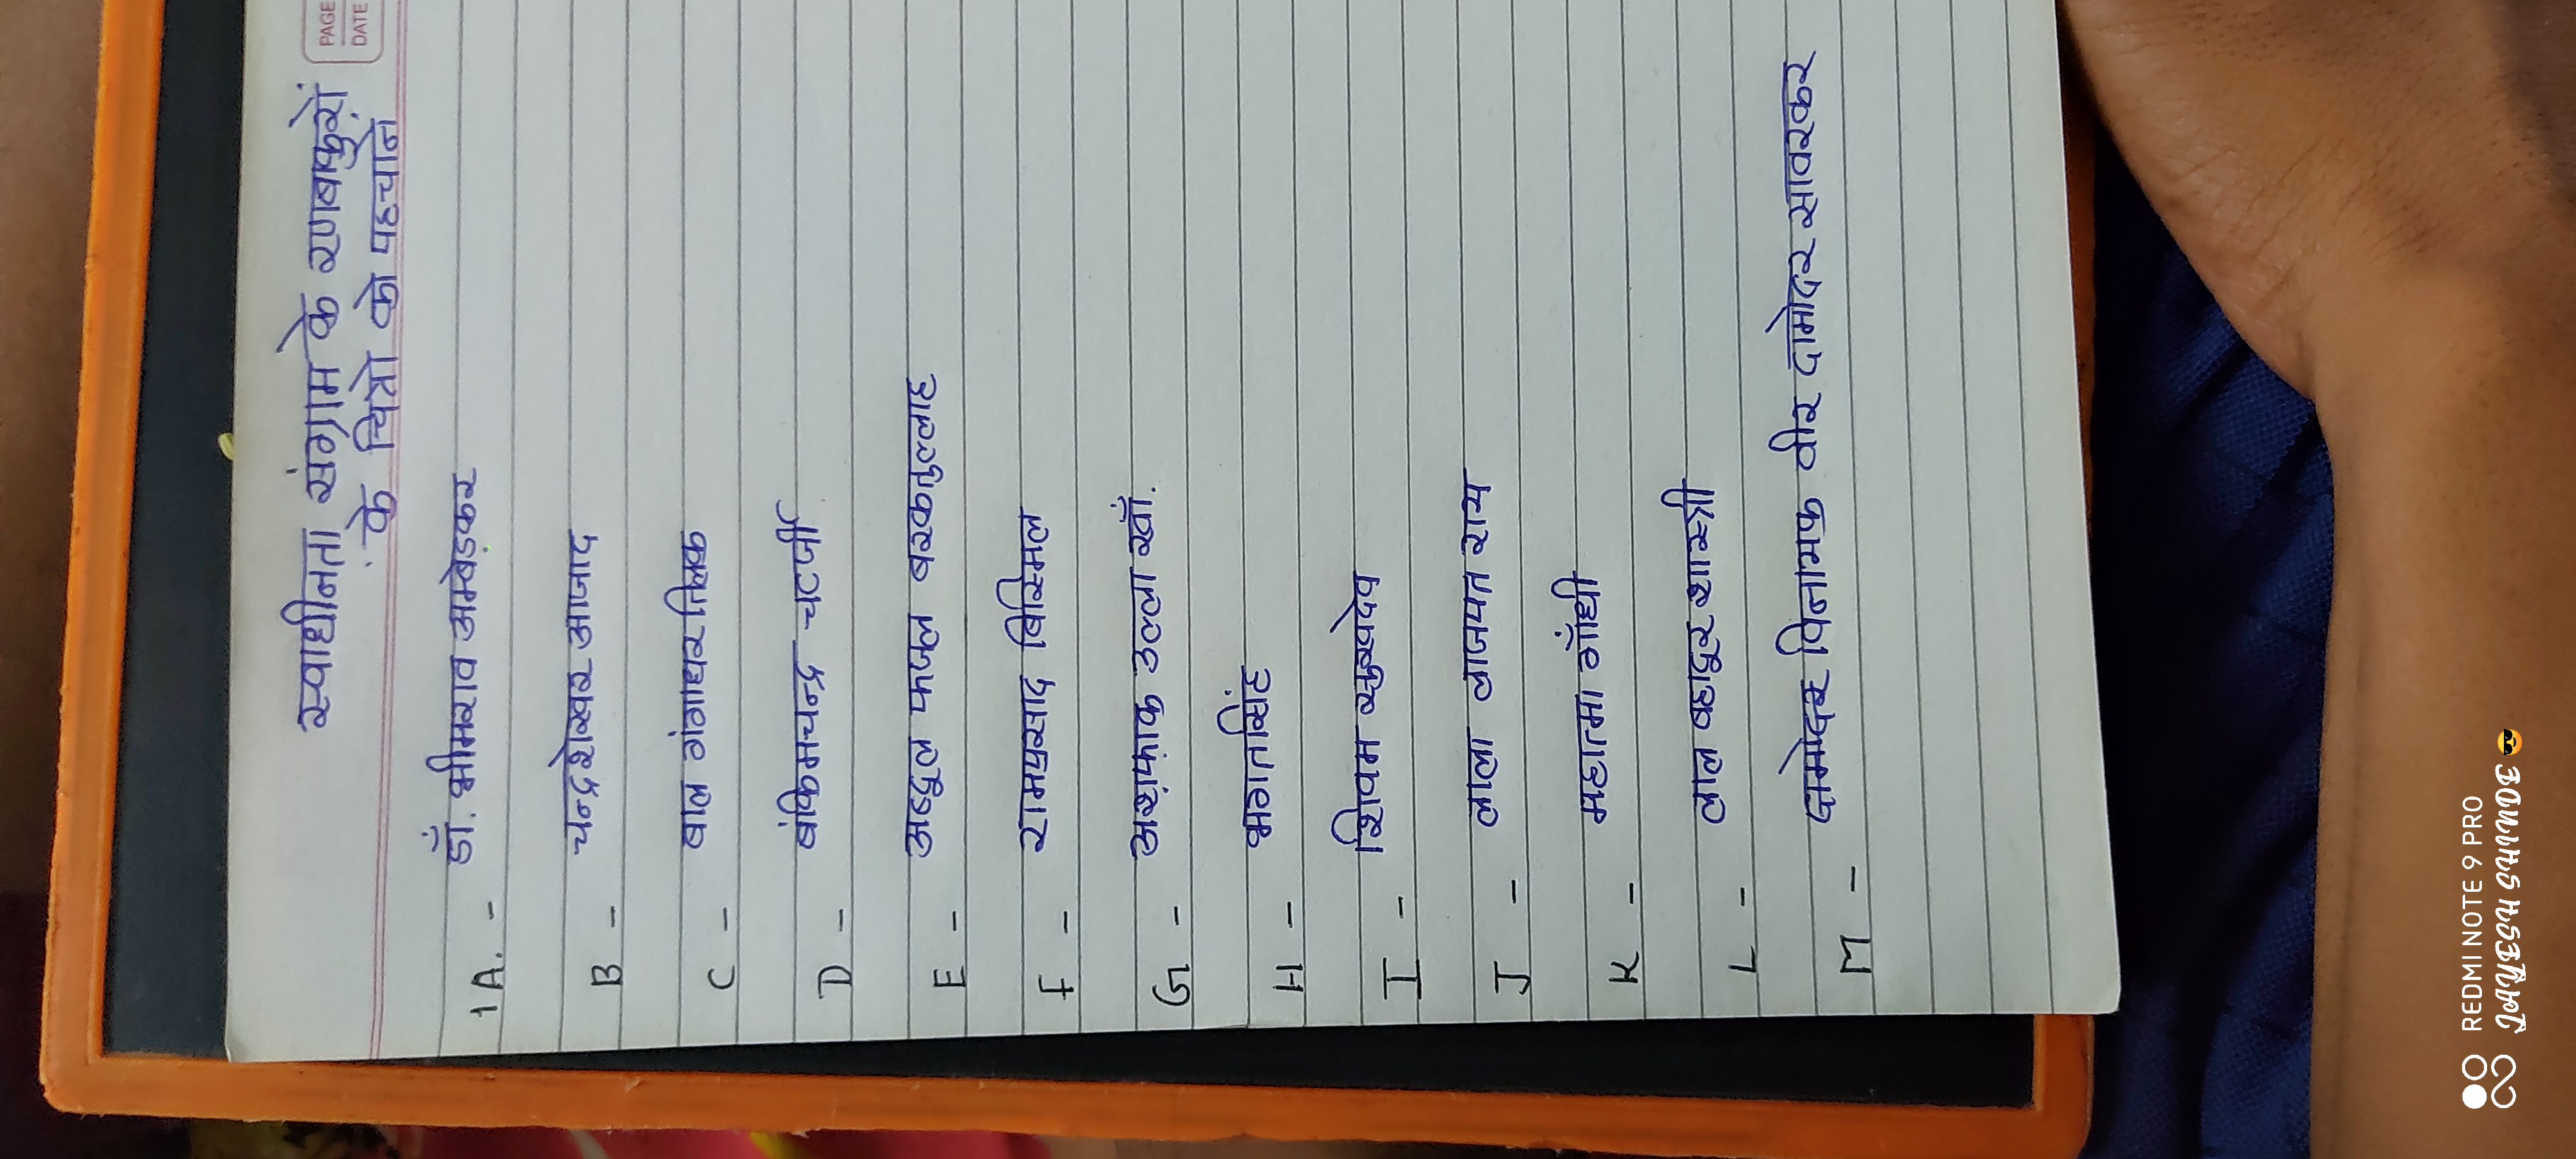 PAGE
DATE
स्वाधीनता संग्राम के रणबाकुरों
के चित्रो को पहचान
1A. - डॉ. भीमराव अम्बेड़कर
B - चन्द्रशेखर आजाद
C - बाल गंगाधर तिलक
D - बंकिमचन्द्र चटर्जी
E - अब्दुल फजल बरकतुल्लाह
F - रामप्रसाद बिस्मिल
G - अशफ़ाक उल्ला खाँ.
H - भगतसिंह
I - शिवम सुखदेव
J - लाला लाजपत राय
K - महात्मा गाँधी
L - लाल बहादुर शास्त्री
M - दामोदर विनायक वीर दामोदर सावरकर
REDMI NOTE 9 PRO